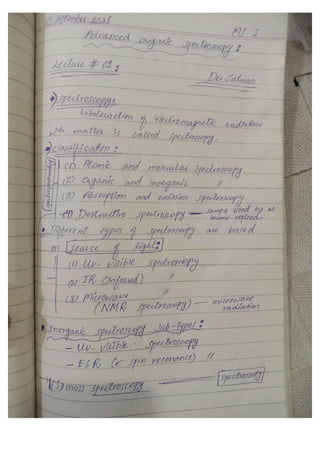 September 2025
MS. I
Advanced organic spectroscopy:
Lecture # 01:
Dr. Salman
Spectroscopy:
Interaction of electromagnetic radiations
with matter is called spectroscopy.
Classification:
(1) Atomic and molecular spectroscopy
(2) Organic and inorganic "
(3) Absorption and emission spectroscopy
(4) Destructive spectroscopy — sample used by us
Different types of spectroscopy are based
on source of light:
(1) UV-visible spectroscopy
(2) IR (Infrared) "
(3) Microwave "
(NMR spectroscopy) — microwave
radiation.
Inorganic spectroscopy sub-types:
- UV-visible spectroscopy
- ESR (e⁻ spin resonance) "
(5) mass spectroscopy — spectroscopy